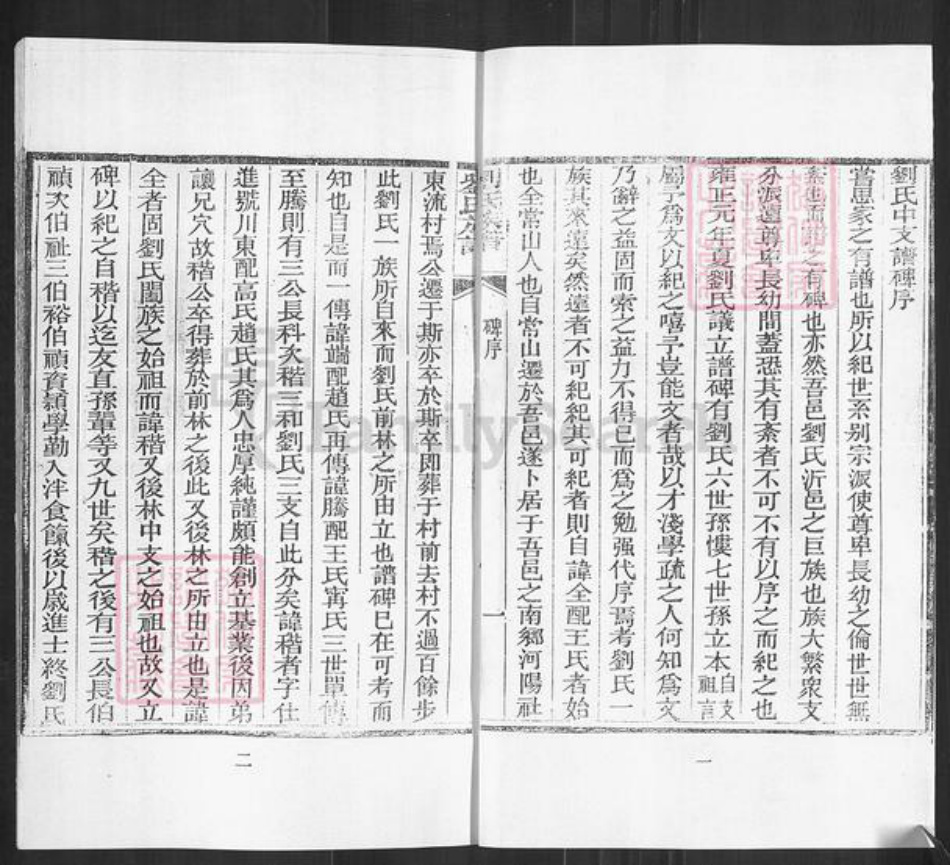 劉氏中支譜碑序
嘗思家之有譜也所以紀世系别宗派使尊卑長幼之倫世世無
紊也而譜之有碑也亦然吾邑劉氏沂邑之巨族也族大繁衆支
分派遠尊卑長幼間蓋恐其有紊者不可不有以序之而紀之也
雍正元年夏劉氏議立譜碑有劉氏六世孫慺七世孫立本自支祖言
屬予爲文以紀之噫予豈能文者哉以才淺學疏之人何知爲文
乃辭之益固而索之益力不得已而爲之勉强代序焉考劉氏一
族其來遠矣然遠者不可紀紀其可紀者則自諱全配王氏者始
也全常山人也自常山遷於吾邑遂卜居于吾邑之南鄉河陽社
劉氏族譜
碑序
一
東流村焉公遷于斯亦卒於斯卒即葬于村前去村不過百餘步
此劉氏一族所自來而劉氏前林之所由立也譜碑已在可考而
知也自是而一傳諱端配趙氏再傳諱騰配王氏甯氏三世單傳
至騰則有三公長科次稭三和劉氏三支自此分矣諱稭者字仕
進號川東配高氏趙氏其爲人忠厚純謹頗能創立基業後因弟
讓兄穴故稭公卒得葬於前林之後此又後林之所由立也是諱
全者固劉氏闔族之始祖而諱稭又後林中支之始祖也故又立
碑以紀之自稭以迄友直孫輩等又九世矣稭之後有三公長伯
禎次伯祉三伯裕伯禎資頴學勤入泮食餼後以歲進士終劉氏
一
二
FamilySearch